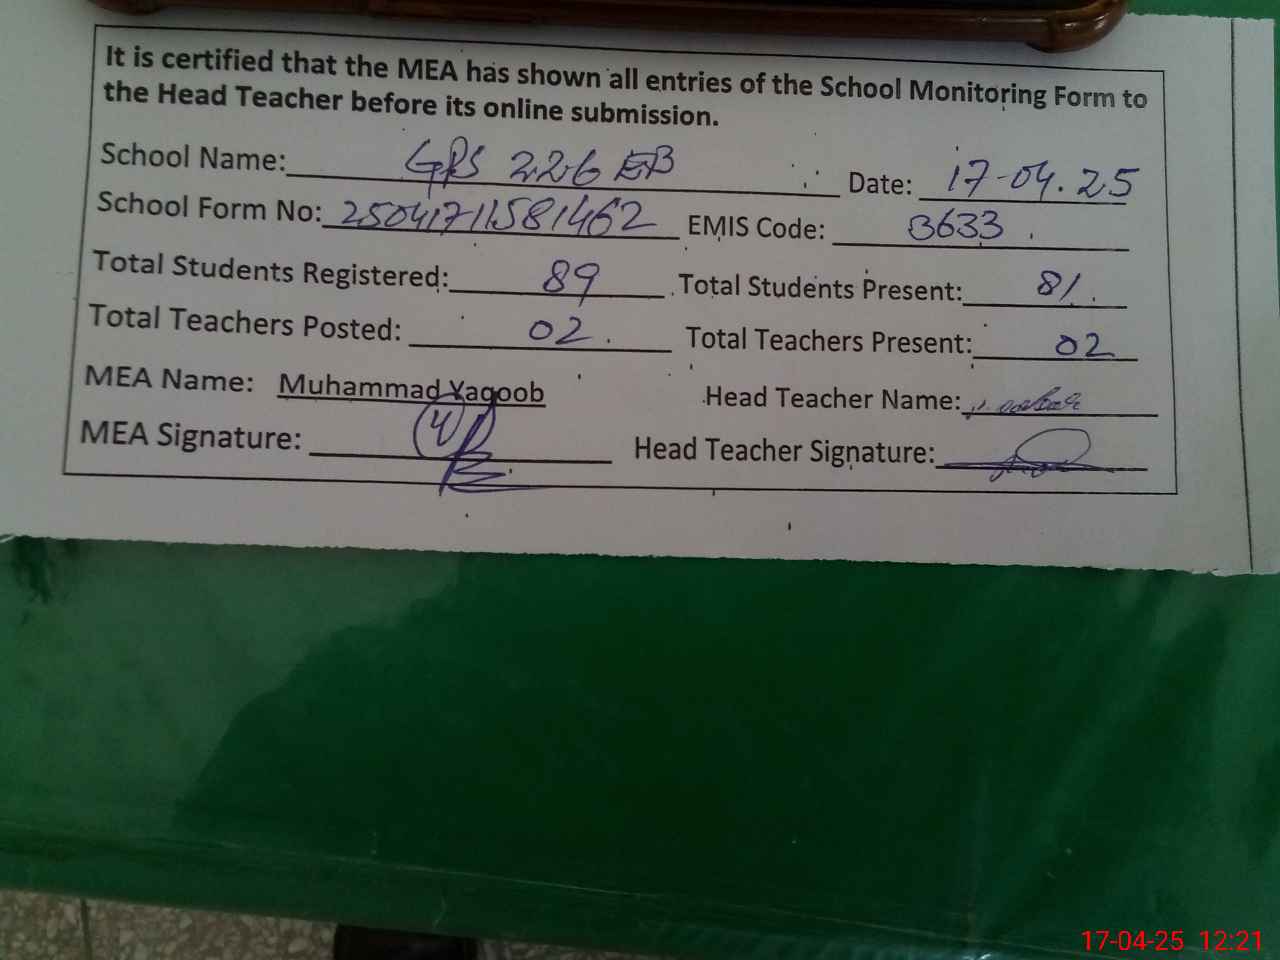 It is certified that the MEA has shown all entries of the School Monitoring Form to
the Head Teacher before its online submission.
School Name: GPS 226 EB Date: 17-04.25
School Form No: 25041711581462 EMIS Code: 3633
Total Students Registered: 89 Total Students Present: 81
Total Teachers Posted: 02 Total Teachers Present: 02
MEA Name: Muhammad Yaqoob Head Teacher Name:
MEA Signature: Head Teacher Signature:
17-04-25 12:21